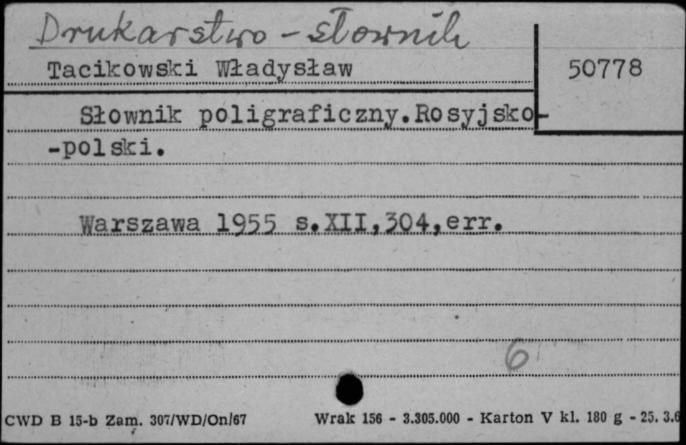 Drukarstwo - słownik
Tacikowski Władysław
50778
Słownik poligraficzny.Rosyjsko-
-polski.
Warszawa 1955 s.XII,304,err.
6
CWD B 15-b Zam. 307/WD/On/67
Wrak 156 - 3.305.000 - Karton V kl. 180 g - 25. 3.6